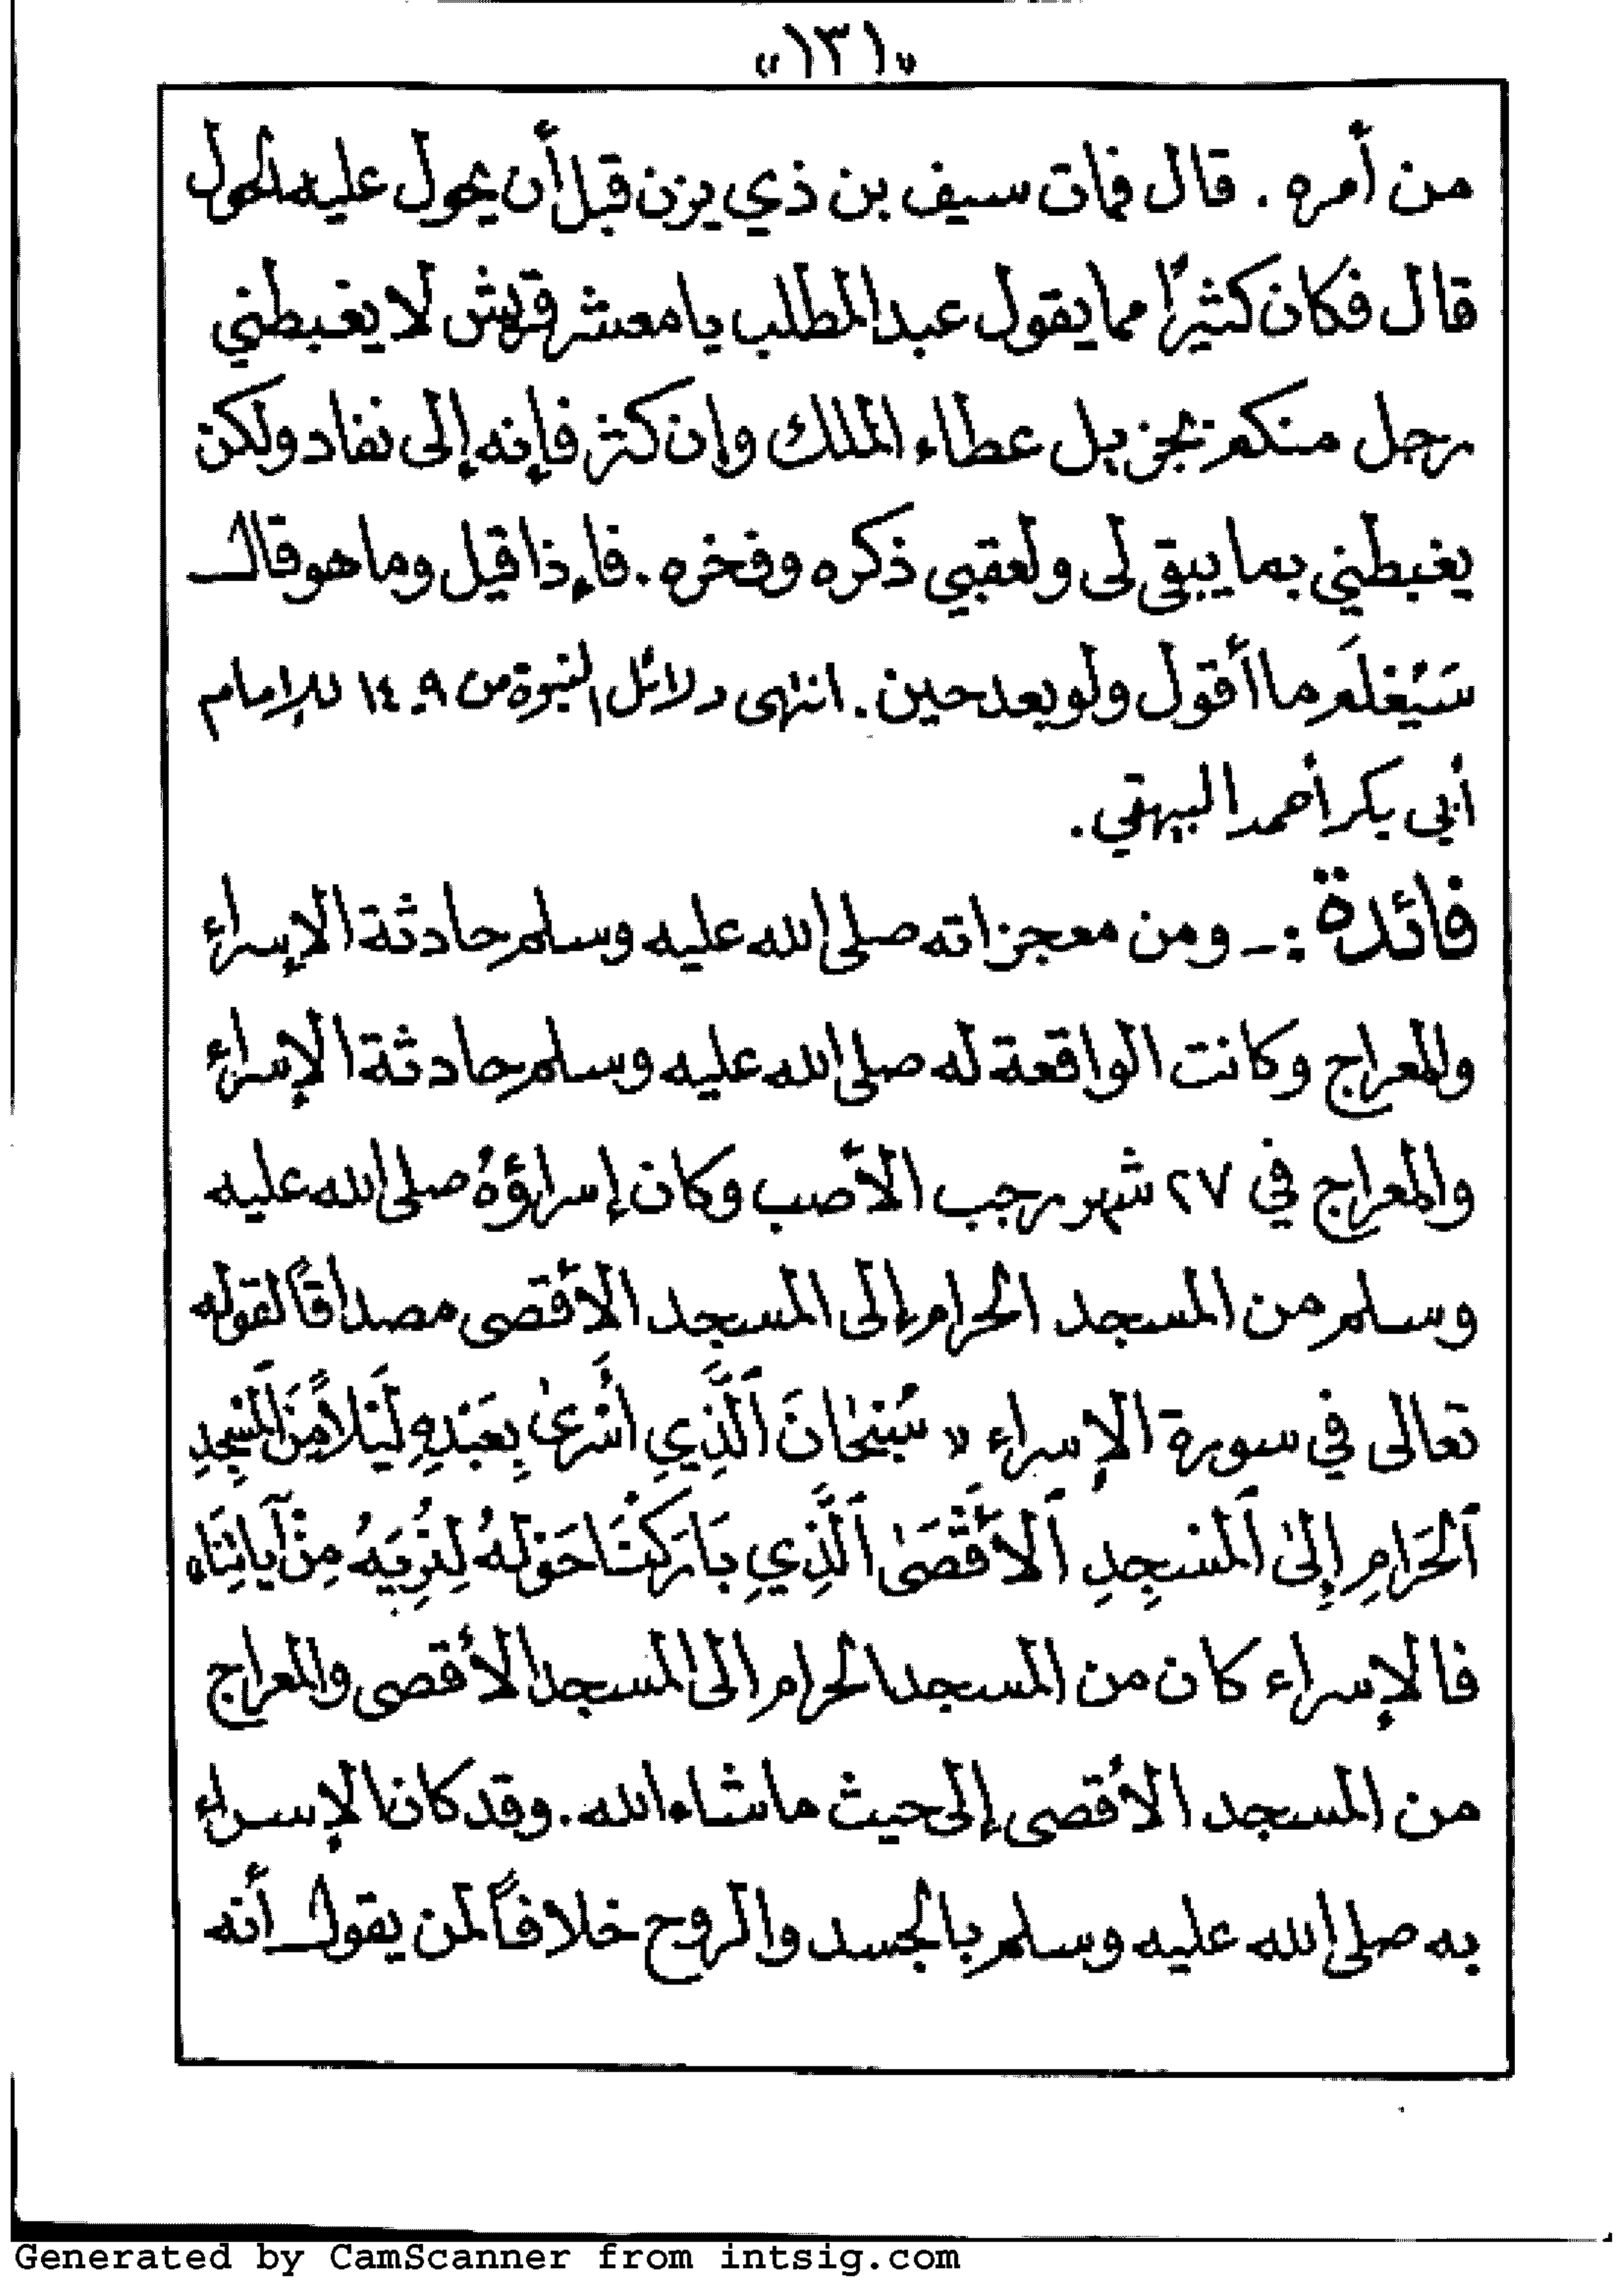 «١٣١»
من أمره . قال فمات سيف بن ذي يزن قبل أن يحول عليه الحول
قال فكان كثيرًا مما يقول عبد المطلب يا معشر قريش لا يغبطني
رجل منكم بجزيل عطاء الملك وإن كثر فإنه إلى نفاد ولكن
يغبطني بما يبقى لى ولعقبي ذكره وفخره . فإذا قيل وما هو قال
سَيُعْلَمَ ما أقول ولو بعد حين . انتهى دلائل النبوة ص ١٤.٩ للإمام
أبي بكر أحمد البيهقي .
فائدة :ـ ومن معجزاته صلى الله عليه وسلم حادثة الإسراء
والمعراج وكانت الواقعة له صلى الله عليه وسلم حادثة الإسراء
والمعراج في ٢٧ شهر رجب الأصب وكان إسراؤهُ صلى الله عليه
وسلم من المسجد الحرام إلى المسجد الأقصى مصداقًا لقوله
تعالى في سورة الإسراء « سُبْحٰانَ اَلَّذِي أَسْرىٰ بِعَبْدِهِ لَيْلاً مِنَ اَلْمَسْجِدِ
اَلْحَرَامِ إِلىٰ اَلْمَسْجِدِ اَلأَقْصَىٰ اَلَّذِي بَارَكْنَا حَوْلهُ لِنُرِيَهُ مِنْ آيَاتِنَا»
فالإسراء كان من المسجد الحرام الى المسجد الأقصى والمعراج
من المسجد الأقصى إلى حيث ما شاء الله . وقد كان الإسراء
به صلى الله عليه وسلم بالجسد والروح خلافاً لمن يقول أنه
Generated by CamScanner from intsig.com